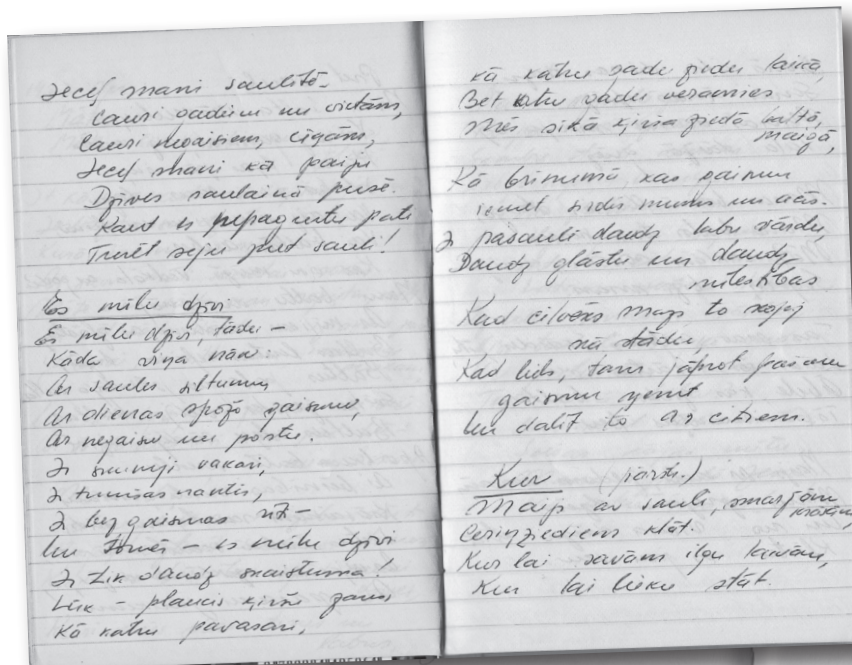 Ieceļ mani saulītē
Cauri gadiem un vietām,
Cauri negaisiem, cīņām,
Ieceļ mani kā paiju
Dzīves saulainā pusē.
Kaut es nepagurtu pate
Turēt seju pret sauli!
Es mīlu dzīvi
Es mīlu dzīvi, tādu –
Kāda viņa nāk:
Ar saules siltumu,
Ar dienas spožo gaismu,
Ar negaisu un postu.
Ir skumji vakari,
Ir tumšas naktis,
Ir bez gaismas rīts –
Un tomēr – es mīlu dzīvi
Ir tik daudz skaistuma!
Lūk – plaucis ķiršu zars,
Kā katru pavasari,
kā katru gadu ziedu laikā,
Bet katru gadu veramies
Mēs sīkā ķirša ziedā baltā,
maigā,
Kā brīnumā, kas gaismu
iemet sirdīs mums un acīs.
Ir pasaulē daudz labu vārdu,
Daudz glāstu un daudz
mīlestības
Kad cilvēks mazs to
kā stādu
Kad liels, tam jāprot pašam
gaismu ņemt
Un dalīt to ar citiem.
Kur (pārstr.)
Maijs ar sauli, smaržām
krāsām,
Ceriņziediem klāt.
Kur lai savām ilgu laivām,
Kur lai lieku stāt.